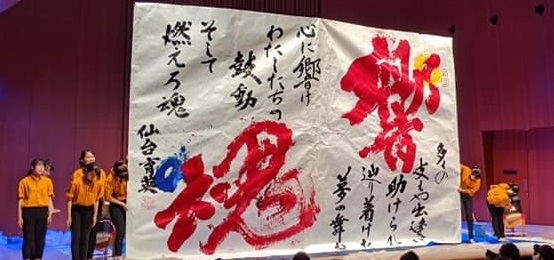 響
多くの
支えや出逢い
助けられ
辿り着けた
夢の舞
心に響け
わたしたちの
鼓動
そして
燃えろ魂
魂
仙台育英